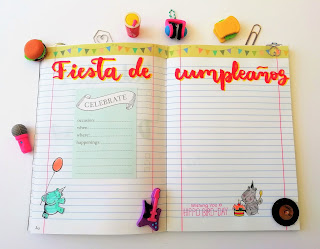 Fiesta de cumpleaños
CELEBRATE
occasion:
when:
where:
happenings:
wishing you a
HIPPO BIRD-DAY